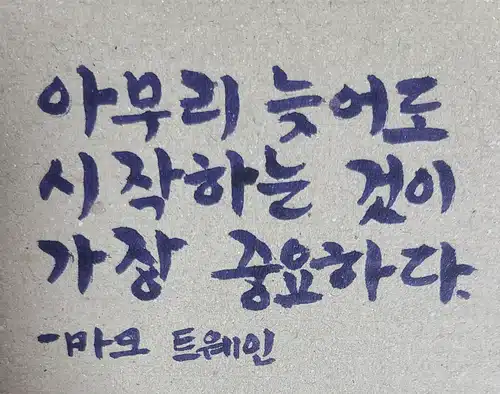 아무리 늦어도
시작하는 것이
가장 중요하다.
-마크 트웨인